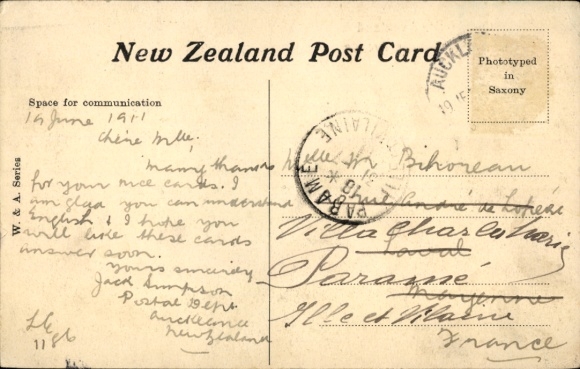 New Zealand Post Card
AUCKL
Phototyped
in
Saxony
Space for communication
W. & A. Series
June 1911
Chère Mlle,
Many thanks
for your nice cards. I
am glad you can understand
English & I hope you
will like these cards
answer soon.
Yours sincerely
Jack Simpson
Postal Dept.
Auckland
New Zealand
1186
PARAMÉ
VILAINE
Melle M Bihoreau
rue André de Lohéac
Villa Charles Marie
Laval
Paramé
Mayenne
Ille et Vilaine
France